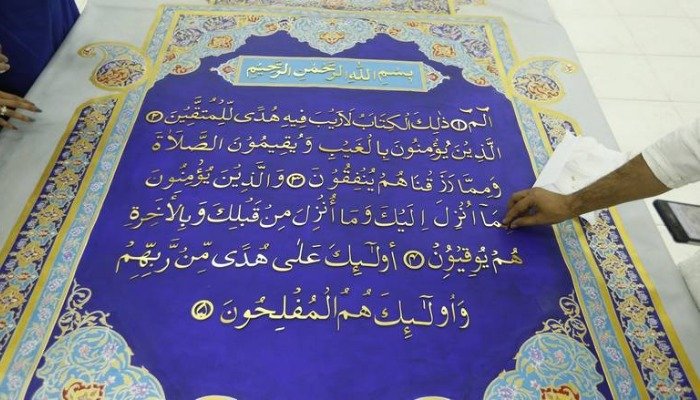 بِسْمِ اللهِ الرَّحْمٰنِ الرَّحِيْمِ
الٓمّٓ ۝١ ذٰلِكَ الْكِتَابُ لَارَيْبَ فِيْهِ هُدًى لِّلْمُتَّقِيْنَ ۝٢
الَّذِيْنَ يُؤْمِنُوْنَ بِالْغَيْبِ وَيُقِيْمُوْنَ الصَّلَاةَ
وَمِمَّا رَزَقْنَاهُمْ يُنْفِقُوْنَ ۝٣ وَالَّذِيْنَ يُؤْمِنُوْنَ
بِمَآ اُنْزِلَ اِلَيْكَ وَمَآ اُنْزِلَ مِنْ قَبْلِكَ وَبِالْاٰخِرَةِ
هُمْ يُوْقِنُوْنَ ۝٤ اُولٰٓئِكَ عَلٰى هُدًى مِّنْ رَّبِّهِمْ
وَاُولٰٓئِكَ هُمُ الْمُفْلِحُوْنَ ۝٥